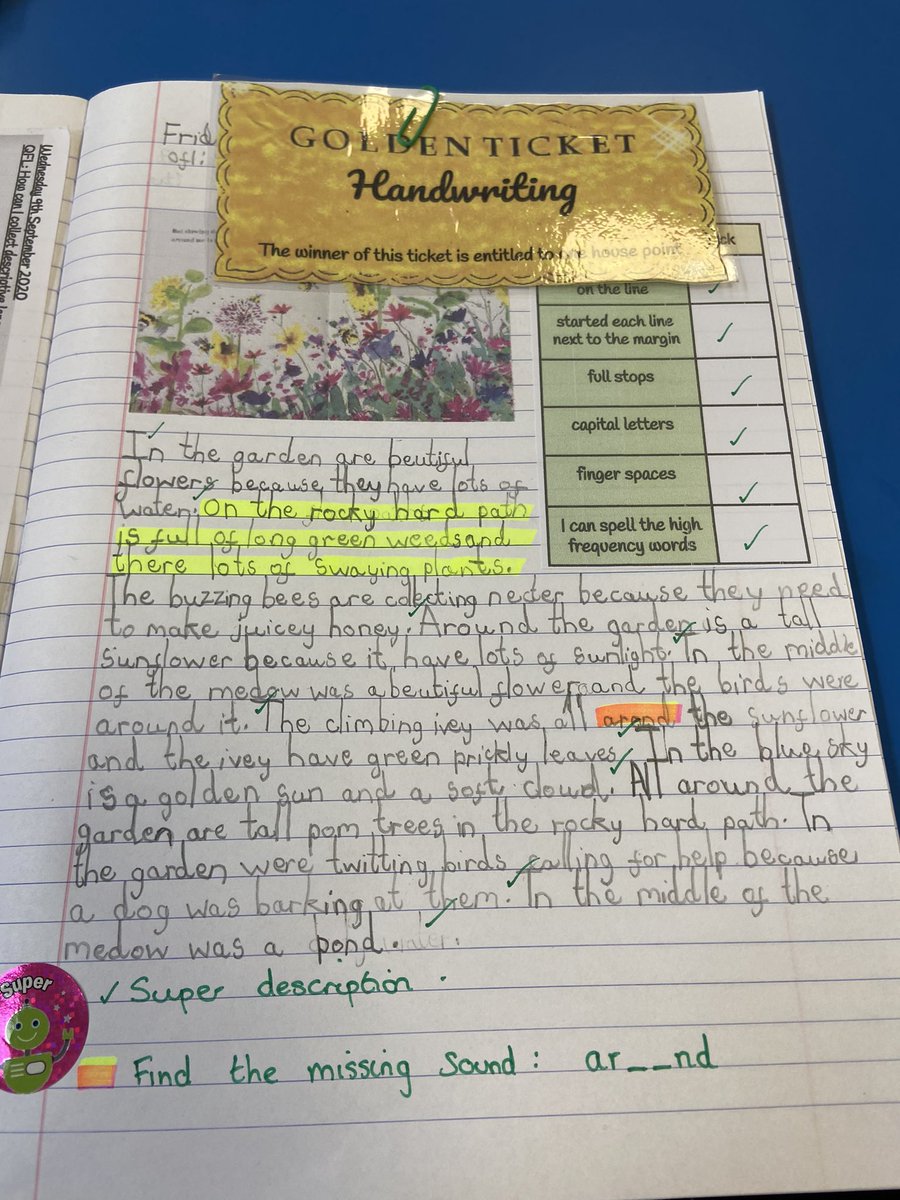 Wednesday 9th September 2020
QFL: How can I collect descriptive
Frid
QFL:
GOLDEN TICKET
Handwriting
The winner of this ticket is entitled to one house point
ck
on the line
started each line
next to the margin
full stops
capital letters
finger spaces
I can spell the high
frequency words
In the garden are beutiful
flowers because they have lots of
water. On the rocky hard path
is full of long green weeds and
there lots of swaying plants.
The buzzing bees are collecting necter because they need
to make juicey honey. Around the garden is a tall
sunflower because it have lots of sunlight. In the middle
of the medow was a beutiful flower and the birds were
around it. The climbing ivey was all arond the sunflower
and the ivey have green prickly leaves. In the blue sky
is a golden sun and a soft cloud. All around the
garden are tall pom trees in the rocky hard path. In
the garden were twitting birds calling for help because
a dog was barking at them. In the middle of the
medow was a pond.
Super
Super description.
Find the missing sound: ar__nd